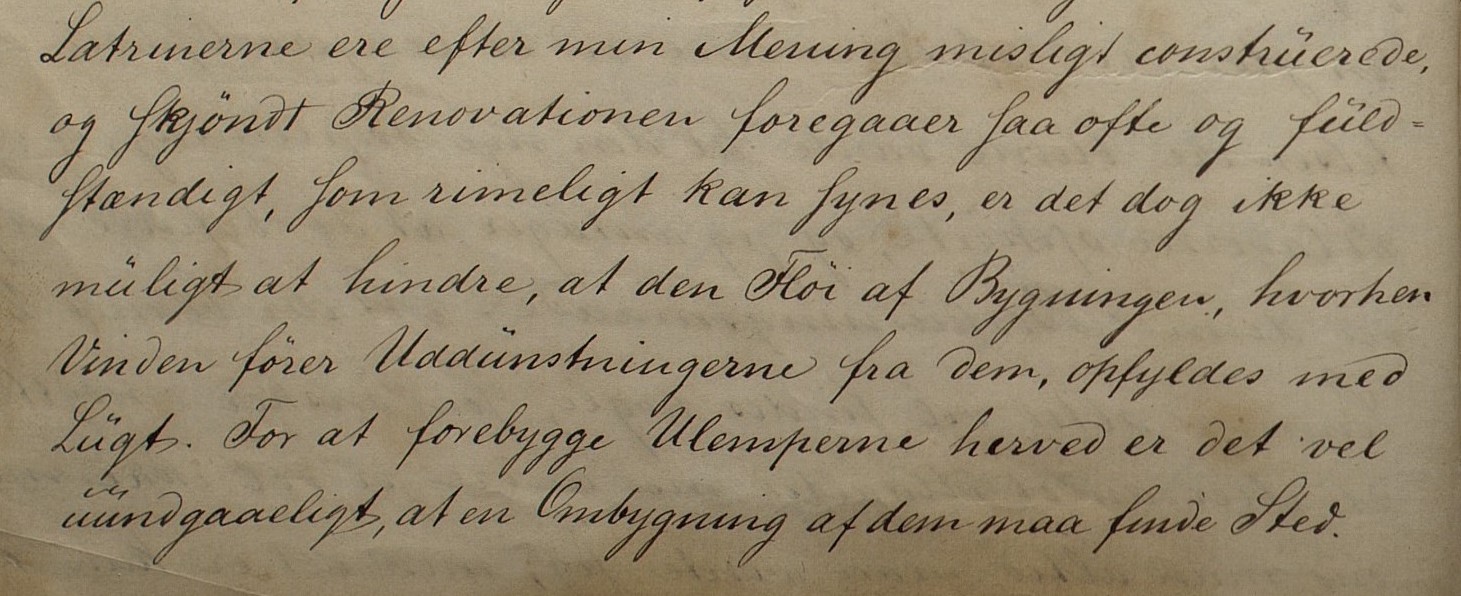 Latrinerne ere efter min Mening misligt construerede,
og skjöndt Renovationen foregaaer saa ofte og fuld=
stændigt, som rimeligt kan synes, er det dog ikke
muligt at hindre, at den Flöi af Bygningen, hvorhen
Vinden förer Uddunstningerne fra dem, opfyldes med
Lugt. For at forebygge Ulemperne herved er det vel
uundgaaeligt, at en Ombygning af dem maa finde Sted.